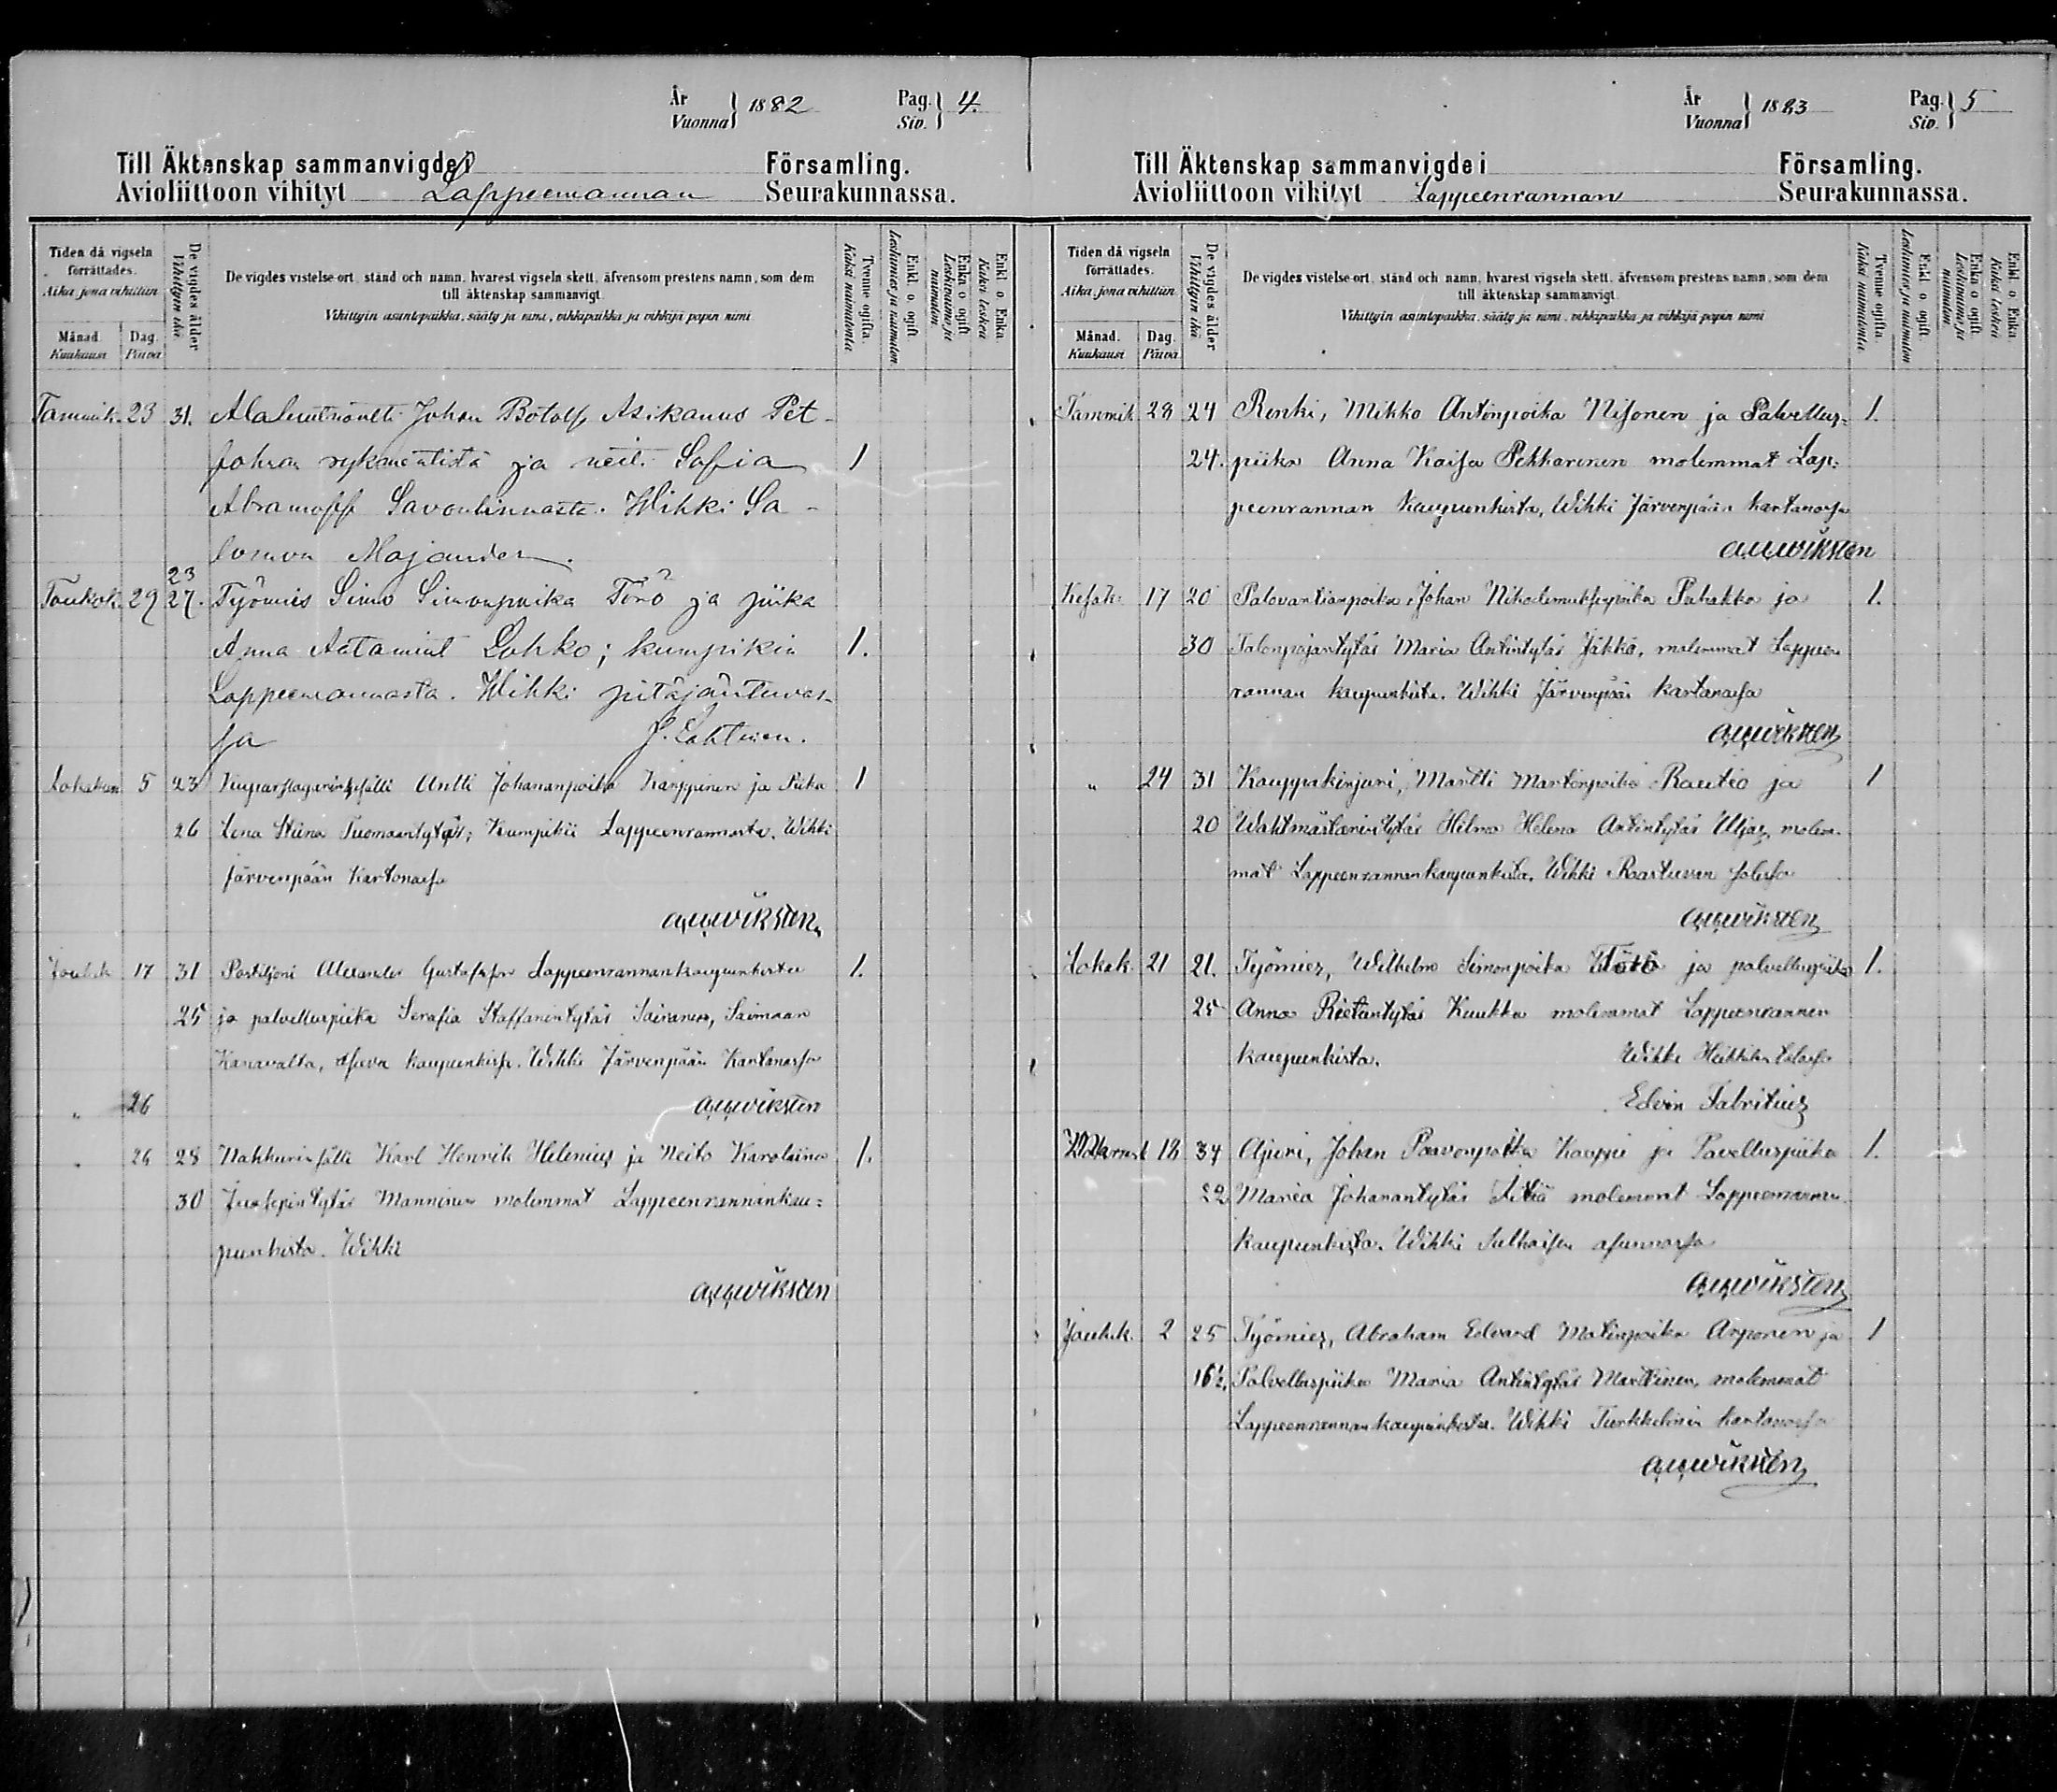 År
Vuonna 1882 Pag.
Siv. 4.
Till Äktenskap sammanvigde i Församling.
Avioliittoon vihityt Lappeenrannan Seurakunnassa.
Tiden då vigseln förrättades.
Aika, jona vihittiin
Månad.
Kuukausi
Dag.
Päivä
De vigdes ålder
Vihittyin ikä
De vigdes vistelse-ort, stånd och namn, hvarest vigseln skett, äfvensom prestens namn, som dem
till äktenskap sammanvigt.
Vihittyin asuntopaikka, sääty ja nimi, vihkipaikka ja vihkijä papin nimi
Tvenne ogifta.
Kaksi naimatonta
Enkl. o. ogift.
Leskimies ja naimaton
Enka o. ogift.
Leskivaimo ja naimaton.
Enkl. o. Enka.
Kaksi leskeä
Tammik. 23 31. Johan Botolf Asikanus Pet-
rykmentistä ja neit. Sofia 1
Abramoff Savonlinnasta. Wihki Sa-
lomon Majander.
23
Toukok. 29 27. Työmies Simo Simonpoika Törö ja piika
Anna Aatamint. Lohko; kumpikin 1.
Lappeenrannasta. Wihki pitäjäntuvas-
sa J. Lahtinen.
Lokakuu 5 23 Antti Johananpoika Karppinen ja Piika 1
26 Lena Stiina Tuomaantytär; Kumpikii Lappeenrannasta. Wihki
Järvenpään Kartanosa
A.U. Wiksten
Jouluk. 17 31 Postiljoni Alexander Gustafsson Lappeenrannankaupunkista 1.
25 ja palvelluspiika Serafia Staffanintytär Sairanen, Saimaan
Kanavalta, asuva kaupunkisa. Wihki Järvenpään Kartanosa
" 26 A.U. Wiksten
" 26 28 Nahkurin sälli Karl Henrik Helenius ja Neito Karoliina 1.
30 Juosepintytär Manninen molemmat Lappeenrannankau=
punkista. Wihki
A.U. Wiksten
År
Vuonna 1883 Pag.
Siv. 5
Till Äktenskap sammanvigde i Församling.
Avioliittoon vihityt Lappeenrannan Seurakunnassa.
Tiden då vigseln förrättades.
Aika, jona vihittiin
Månad.
Kuukausi
Dag.
Päivä
De vigdes ålder
Vihittyin ikä
De vigdes vistelse-ort, stånd och namn, hvarest vigseln skett, äfvensom prestens namn, som dem
till äktenskap sammanvigt.
Vihittyin asuntopaikka, sääty ja nimi, vihkipaikka ja vihkijä papin nimi
Tvenne ogifta.
Kaksi naimatonta
Enkl. o. ogift.
Leskimies ja naimaton
Enka o. ogift.
Leskivaimo ja naimaton.
Enkl. o. Enka.
Kaksi leskeä
Tammik. 28 24 Renki, Mikko Antinpoika Nisonen ja Palvellus= 1.
24. piika Anna Kaisa Pekkarinen molemmat Lap=
peenrannan Kaupunkista, Wihki Järvenpään kartanosa
A.U. Wiksten
Kesäk. 17 20 Palovantianpoika, Johan Nikodemuksenpoika Pahakka ja 1.
30 Talonpojantytär Maria Antintytär Jäkkö, molemmat Lappeen
rannan kaupunkista. Wihki Järvenpään Kartanosa
A.U. Wiksten
" 24 31 Kauppakirjuri, Martti Martinpoika Rautio ja 1
20 Wahtmästarintytär Hilma Helena Antintytär Uljas, molem-
mat Lappeenrannankaupunkista. Wihki Raastuvan salissa
A.U. Wiksten
Lokak. 21 21. Työmies, Wilhelm Simonpoika Törö ja palvelluspiika 1.
25 Anna Kuukka molemmat Lappeenrannan
kaupunkista. Wihki Heikkilän talosa
Edvin Fabritius
Marrask. 18 34 Ajuri, Johan Paavonpoika Kauppi ja Pavelluspiika 1.
22 Maria Johanantytär molemmat Lappeenrannan
Kaupunkista. Wihki asunnosa
A.U. Wiksten
Jouluk. 2 25 Työmies, Abraham Edvard Matinpoika Arponen ja 1
16½. Palvelluspiika Maria Antintytär Martikinen, molemmat
Lappeenrannankaupunkista. Wihki Turkkelinin kartanosa
A.U. Wiksten